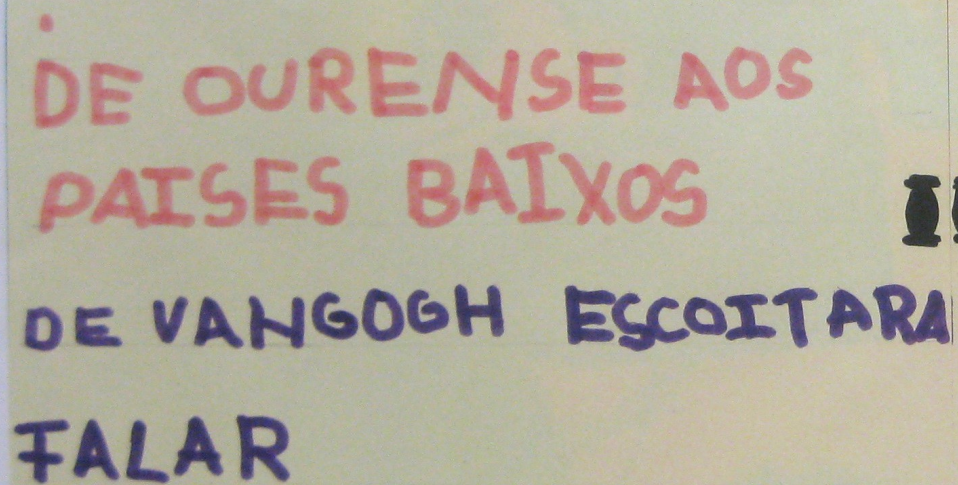 DE OURENSE AOS
PAISES BAIXOS
DE VANGOGH ESCOITARA
FALAR